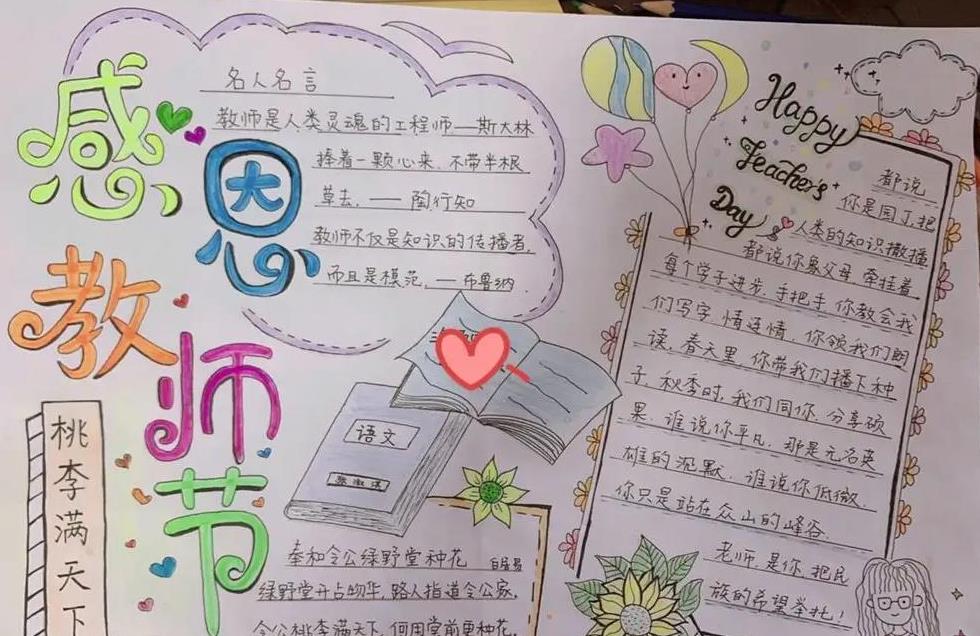 感恩
教师节
大
名人名言
教师是人类灵魂的工程师——斯大林
捧着一颗心来，不带半根
草去，——陶行知
教师不仅是知识的传播者，
而且是模范，——布鲁纳
语文
桃李满天下
奉和令公绿野堂种花 白居易
绿野堂开占物华，路人指道令公家，
令公桃李满天下，何用堂前更种花，
Happy
Teacher's
Day
都说
你是园丁，把
人类的知识撒播
都说你象父母 牵挂着
每个学子进步，手把手 你教会我
们写字 情连情，你领我们朗
读，春天里，你带我们播下种
子，秋季时，我们同你 分享硕
果，谁说你平凡，那是无名英
雄的沉默，谁说你低微，
你只是站在众山的峰谷，
老师，是你，把民
族的希望举托！